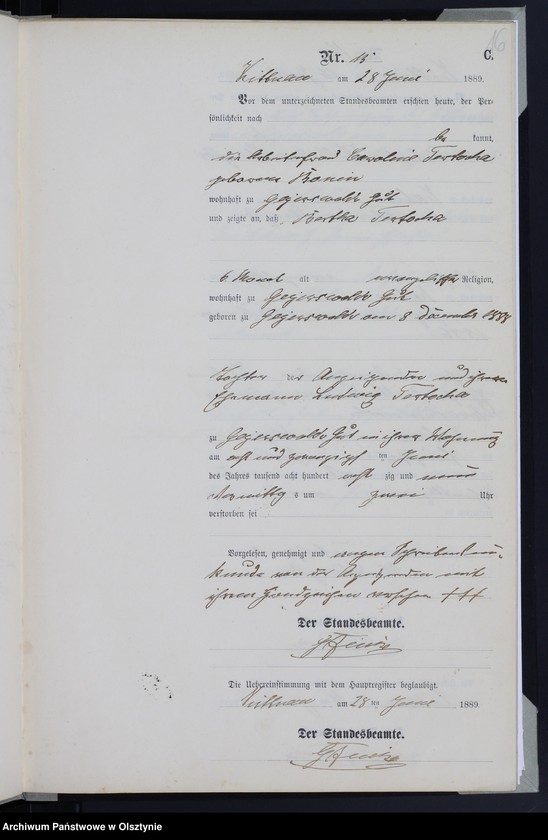 16
Nr. 15 C.
am 28 Juni 1889.
Vor dem unterzeichneten Standesbeamten erschien heute, der Per-
sönlichkeit nach
be kannt,
die Arbeitsfrau Caroline
geborene Bonin
wohnhaft zu Geyerswalde Gut
und zeigte an, daß Bertha
6 Monat alt evangelischer Religion,
wohnhaft zu Geyerswalde Gut
geboren zu Geyerswalde am 8 December 1888
Tochter der Anzeigenden und ihres
Ehemann Ludwig
zu Geyerswalde Gut in ihrer Wohnung
am acht und zwanzigst ten Juni
des Jahres tausend acht hundert acht zig und neun
Vormittag s um zwei Uhr
verstorben sei
Vorgelesen, genehmigt und wegen Schreibensun-
kunde von der Anzeigenden mit
ihrem Handzeichen versehen +++
Der Standesbeamte.
Die Uebereinstimmung mit dem Hauptregister beglaubigt.
am 28 ten Juni 1889
Der Standesbeamte.
Archiwum Państwowe w Olsztynie